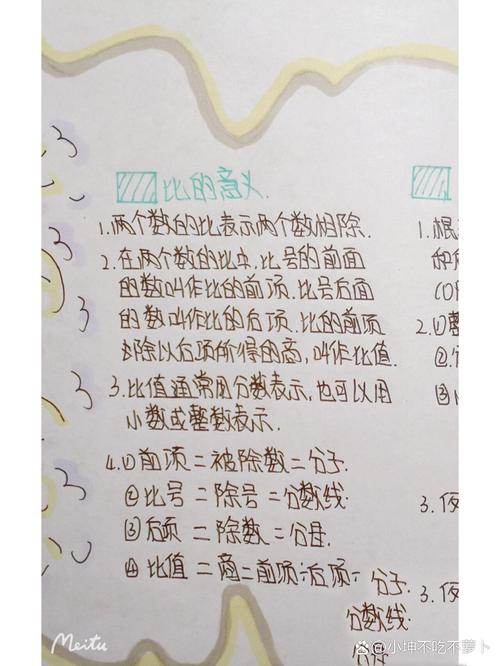 比的意义
1.两个数的比表示两个数相除.
2.在两个数的比中.比号的前面
的数叫作比的前项.比号后面
的数叫作比的后项.比的前项
除以后项所得的商,叫作比值.
3.比值通常用分数表示,也可以用
小数或整数表示.
4.①前项=被除数=分子.
②比号=除号=分数线.
③后项=除数=分母.
④比值=商=前项÷后项=
分子
分数线
1.根
2.①
②
③
3.
3.
Meitu
@小坤不吃不萝卜